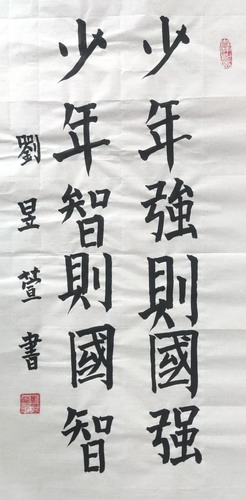 少年強則國强
少年智則國智
劉昱萱書